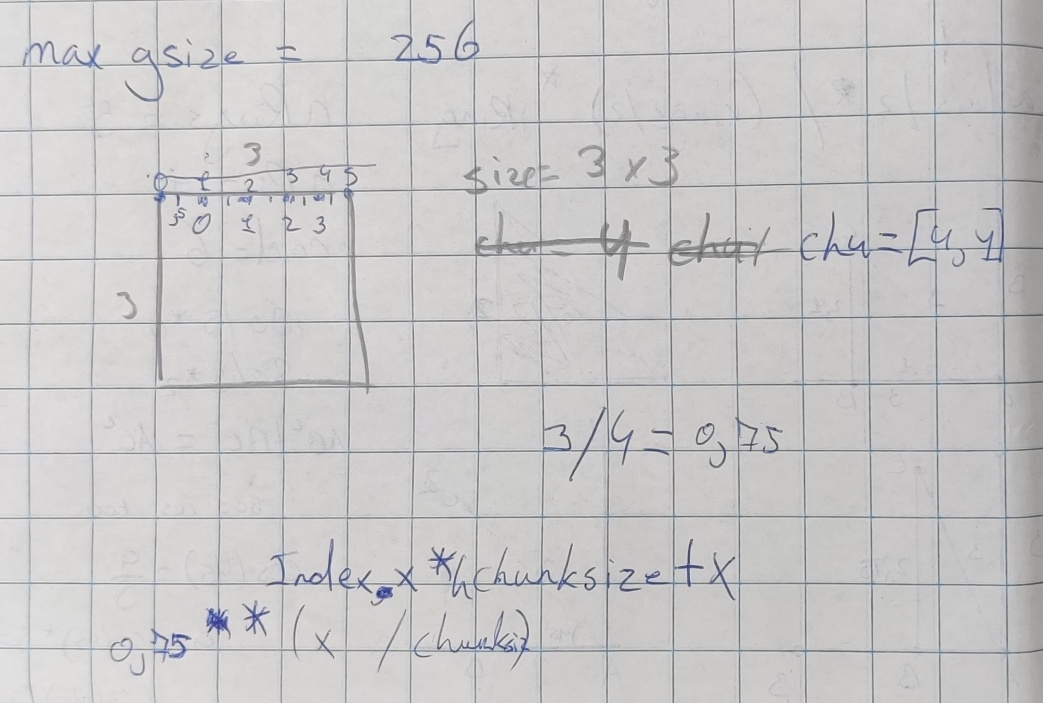 max gsize = 256
3
0 1 2 3 4 5
size= 3 x 3
0 1 2 3
chu = [4, 4]
3
3/4 = 0,75
Index.x * chunksize + x
0,75 * * (x / chunksiz)